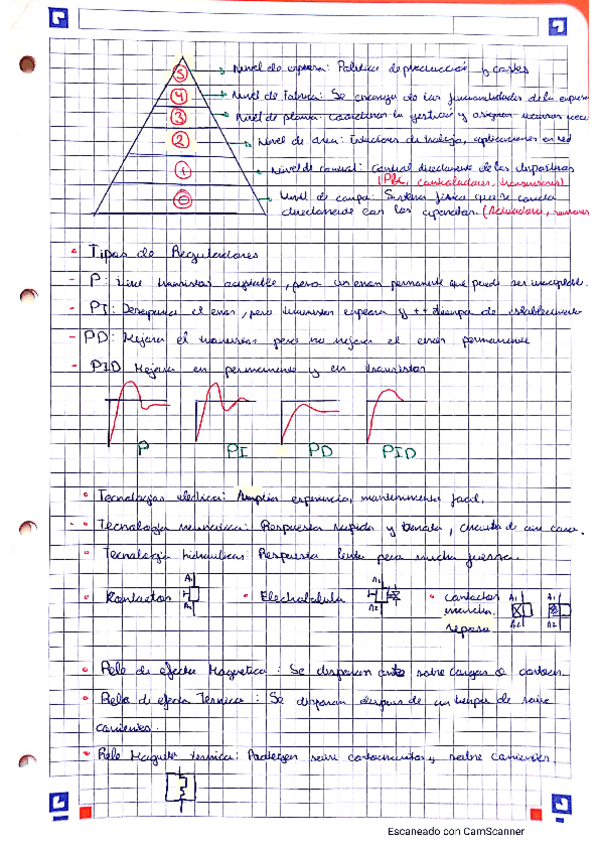 5 Nivel de empresa: Politica de producción y costes
4 Nivel de Fabrica: Se encarga de las funcionalidades de la empresa
3 Nivel de planta: Coordinar la gestion y asignar recursos
2 Nivel de area: Estaciones de trabajo, aplicaciones en red
1 Nivel de control: Control directamente de los dispositivos
(PLC, controladores, transmisores)
0 Nivel de campo: Sistema físico que se
directamente con los (Actuadores,
Tipos de Reguladores
- P: transitorio aceptable, pero un error permanente que puede ser inaceptable.
- PI: Desaparece el error, pero transitorio empeora y ++ tiempo de establecimiento
- PD: Mejora el transitorio pero no mejora el error permanente
- PID Mejora en permanente y en transitorio
P PI PD PID
Tecnologias electrica: Amplia experiencia, mantenimiento facil.
- Tecnologia neumatica: Respuesta rapida y barata, circuito de aire
Tecnologia hidraulicas: Respuesta lenta pero mucha fuerza.
Kontactor A1 A2
Electrovalvula A1 A2
contactor A1 A2 A1 A2
reposo
Rele de efecto Magnetico: Se disparan ante sobre cargas o
Rele de efecto Termico: Se disparan despues de un tiempo de sobre
corrientes.
Rele Magneto termico: Protegen sobre cortocircuitos y sobre corrientes.
Escaneado con CamScanner